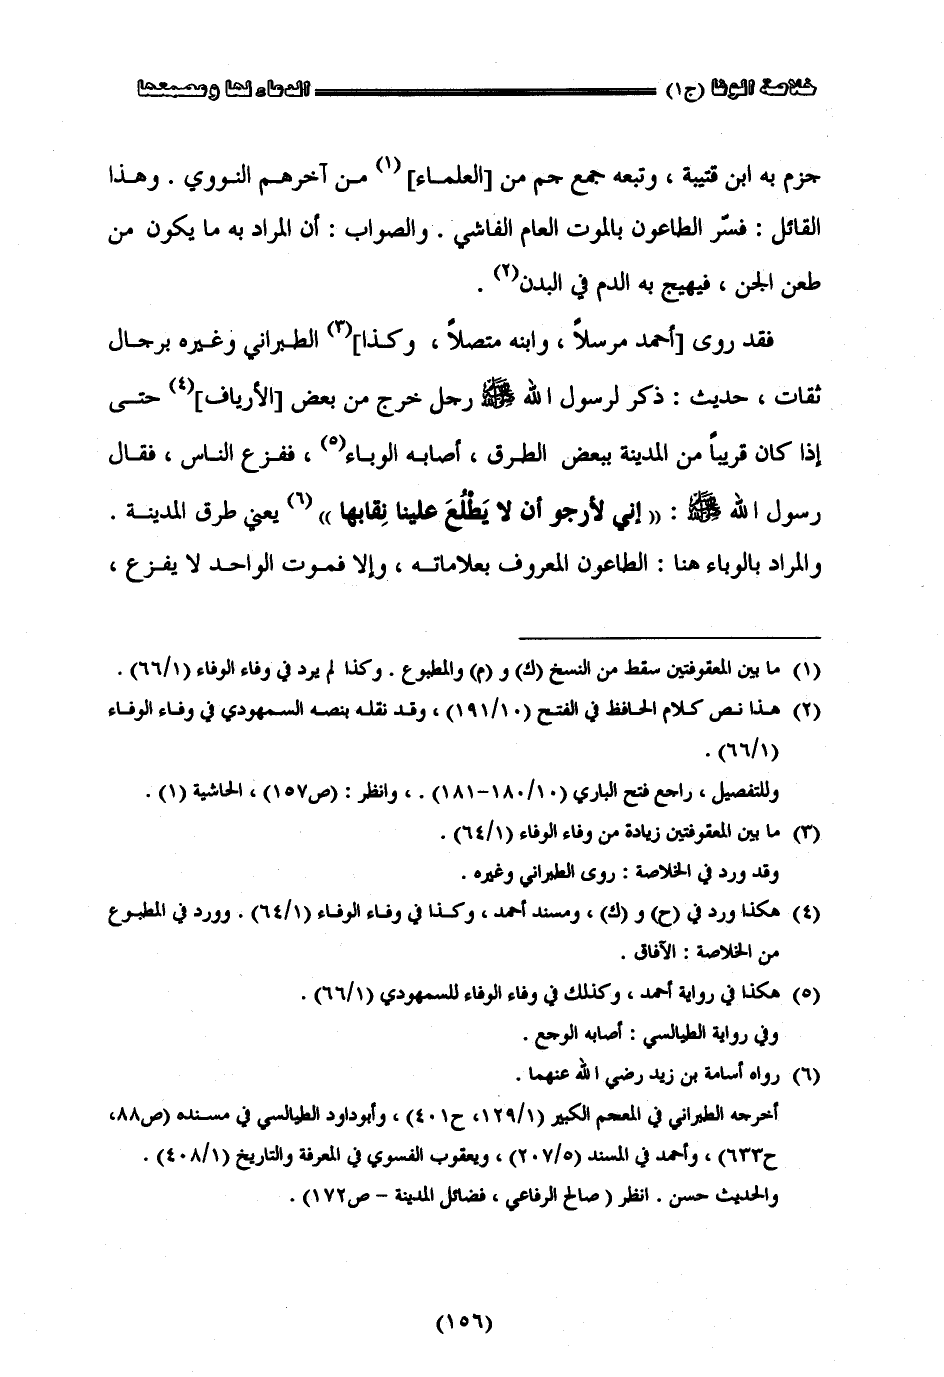 خلاصة الوفا (ج١) الدعاء لها ومصبعها
جزم به ابن قتيبة ، وتبعه جمع جم من [العلماء] (١) من آخرهم النووي . وهذا
القائل : فسّر الطاعون بالموت العام الفاشي . والصواب : أن المراد به ما يكون من
طعن الجن ، فيهيج به الدم في البدن(٢) .
فقد روى [أحمد مرسلاً ، وابنه متصلاً ، وكذا](٣) الطبراني وغيره برجال
ثقات ، حديث : ذكر لرسول الله ﷺ رجل خرج من بعض [الأرياف](٤) حتى
إذا كان قريباً من المدينة ببعض الطرق ، أصابه الوباء(٥) ، ففزع الناس ، فقال
رسول الله ﷺ : « إني لأرجو أن لا يَطْلُعَ علينا نِقابها » (٦) يعني طرق المدينة .
والمراد بالوباء هنا : الطاعون المعروف بعلاماته ، وإلا فموت الواحد لا يفزع ،
(١) ما بين المعقوفتين سقط من النسخ (ك) و (م) والمطبوع . وكذا لم يرد في وفاء الوفاء (٦٦/١) .
(٢) هذا نص كلام الحافظ في الفتح (١٩١/١٠) ، وقد نقله بنصه السمهودي في وفاء الوفاء
(٦٦/١) .
وللتفصيل ، راجع فتح الباري (١٨٠/١٠-١٨١) . ، وانظر : (ص١٥٧) ، الحاشية (١) .
(٣) ما بين المعقوفتين زيادة من وفاء الوفاء (٦٤/١) .
وقد ورد في الخلاصة : روى الطبراني وغيره .
(٤) هكذا ورد في (ح) و (ك) ، ومسند أحمد ، وكذا في وفاء الوفاء (٦٤/١) . وورد في المطبوع
من الخلاصة : الآفاق .
(٥) هكذا في رواية أحمد ، وكذلك في وفاء الوفاء للسمهودي (٦٦/١) .
وفي رواية الطيالسي : أصابه الوجع .
(٦) رواه أسامة بن زيد رضي الله عنهما .
أخرجه الطبراني في المعجم الكبير (١٢٩/١، ح٤٠١) ، وأبوداود الطيالسي في مسنده (ص٨٨،
ح٦٣٣) ، وأحمد في المسند (٢٠٧/٥) ، ويعقوب الفسوي في المعرفة والتاريخ (٤٠٨/١) .
والحديث حسن . انظر ( صالح الرفاعي ، فضائل المدينة – ص١٧٢) .
(١٥٦)